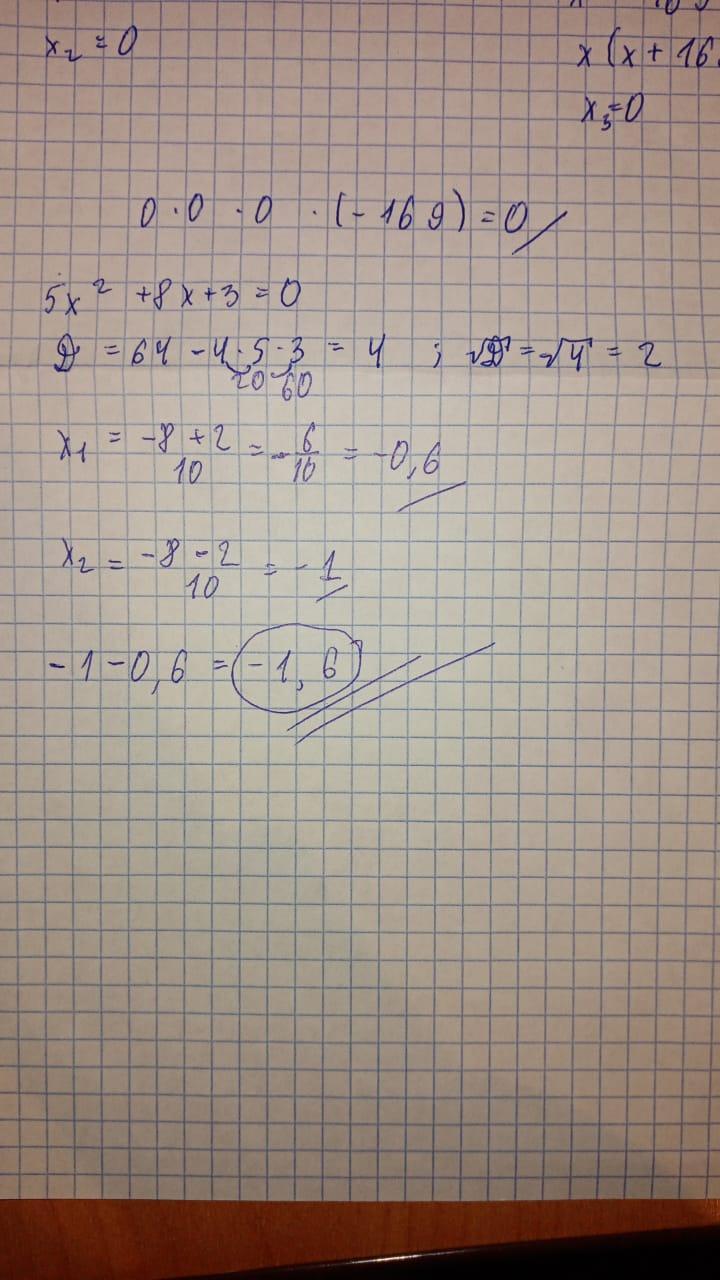 x₂ = 0
x(x + 16
x₃ = 0
0 · 0 · 0 · (-169) = 0
5x² + 8x + 3 = 0
D = 64 - 4 · 5 · 3 = 4 ; √D = √4 = 2
20 60
x₁ = (-8 + 2)/10 = -6/10 = -0,6
x₂ = (-8 - 2)/10 = -1
-1 - 0,6 = -1,6